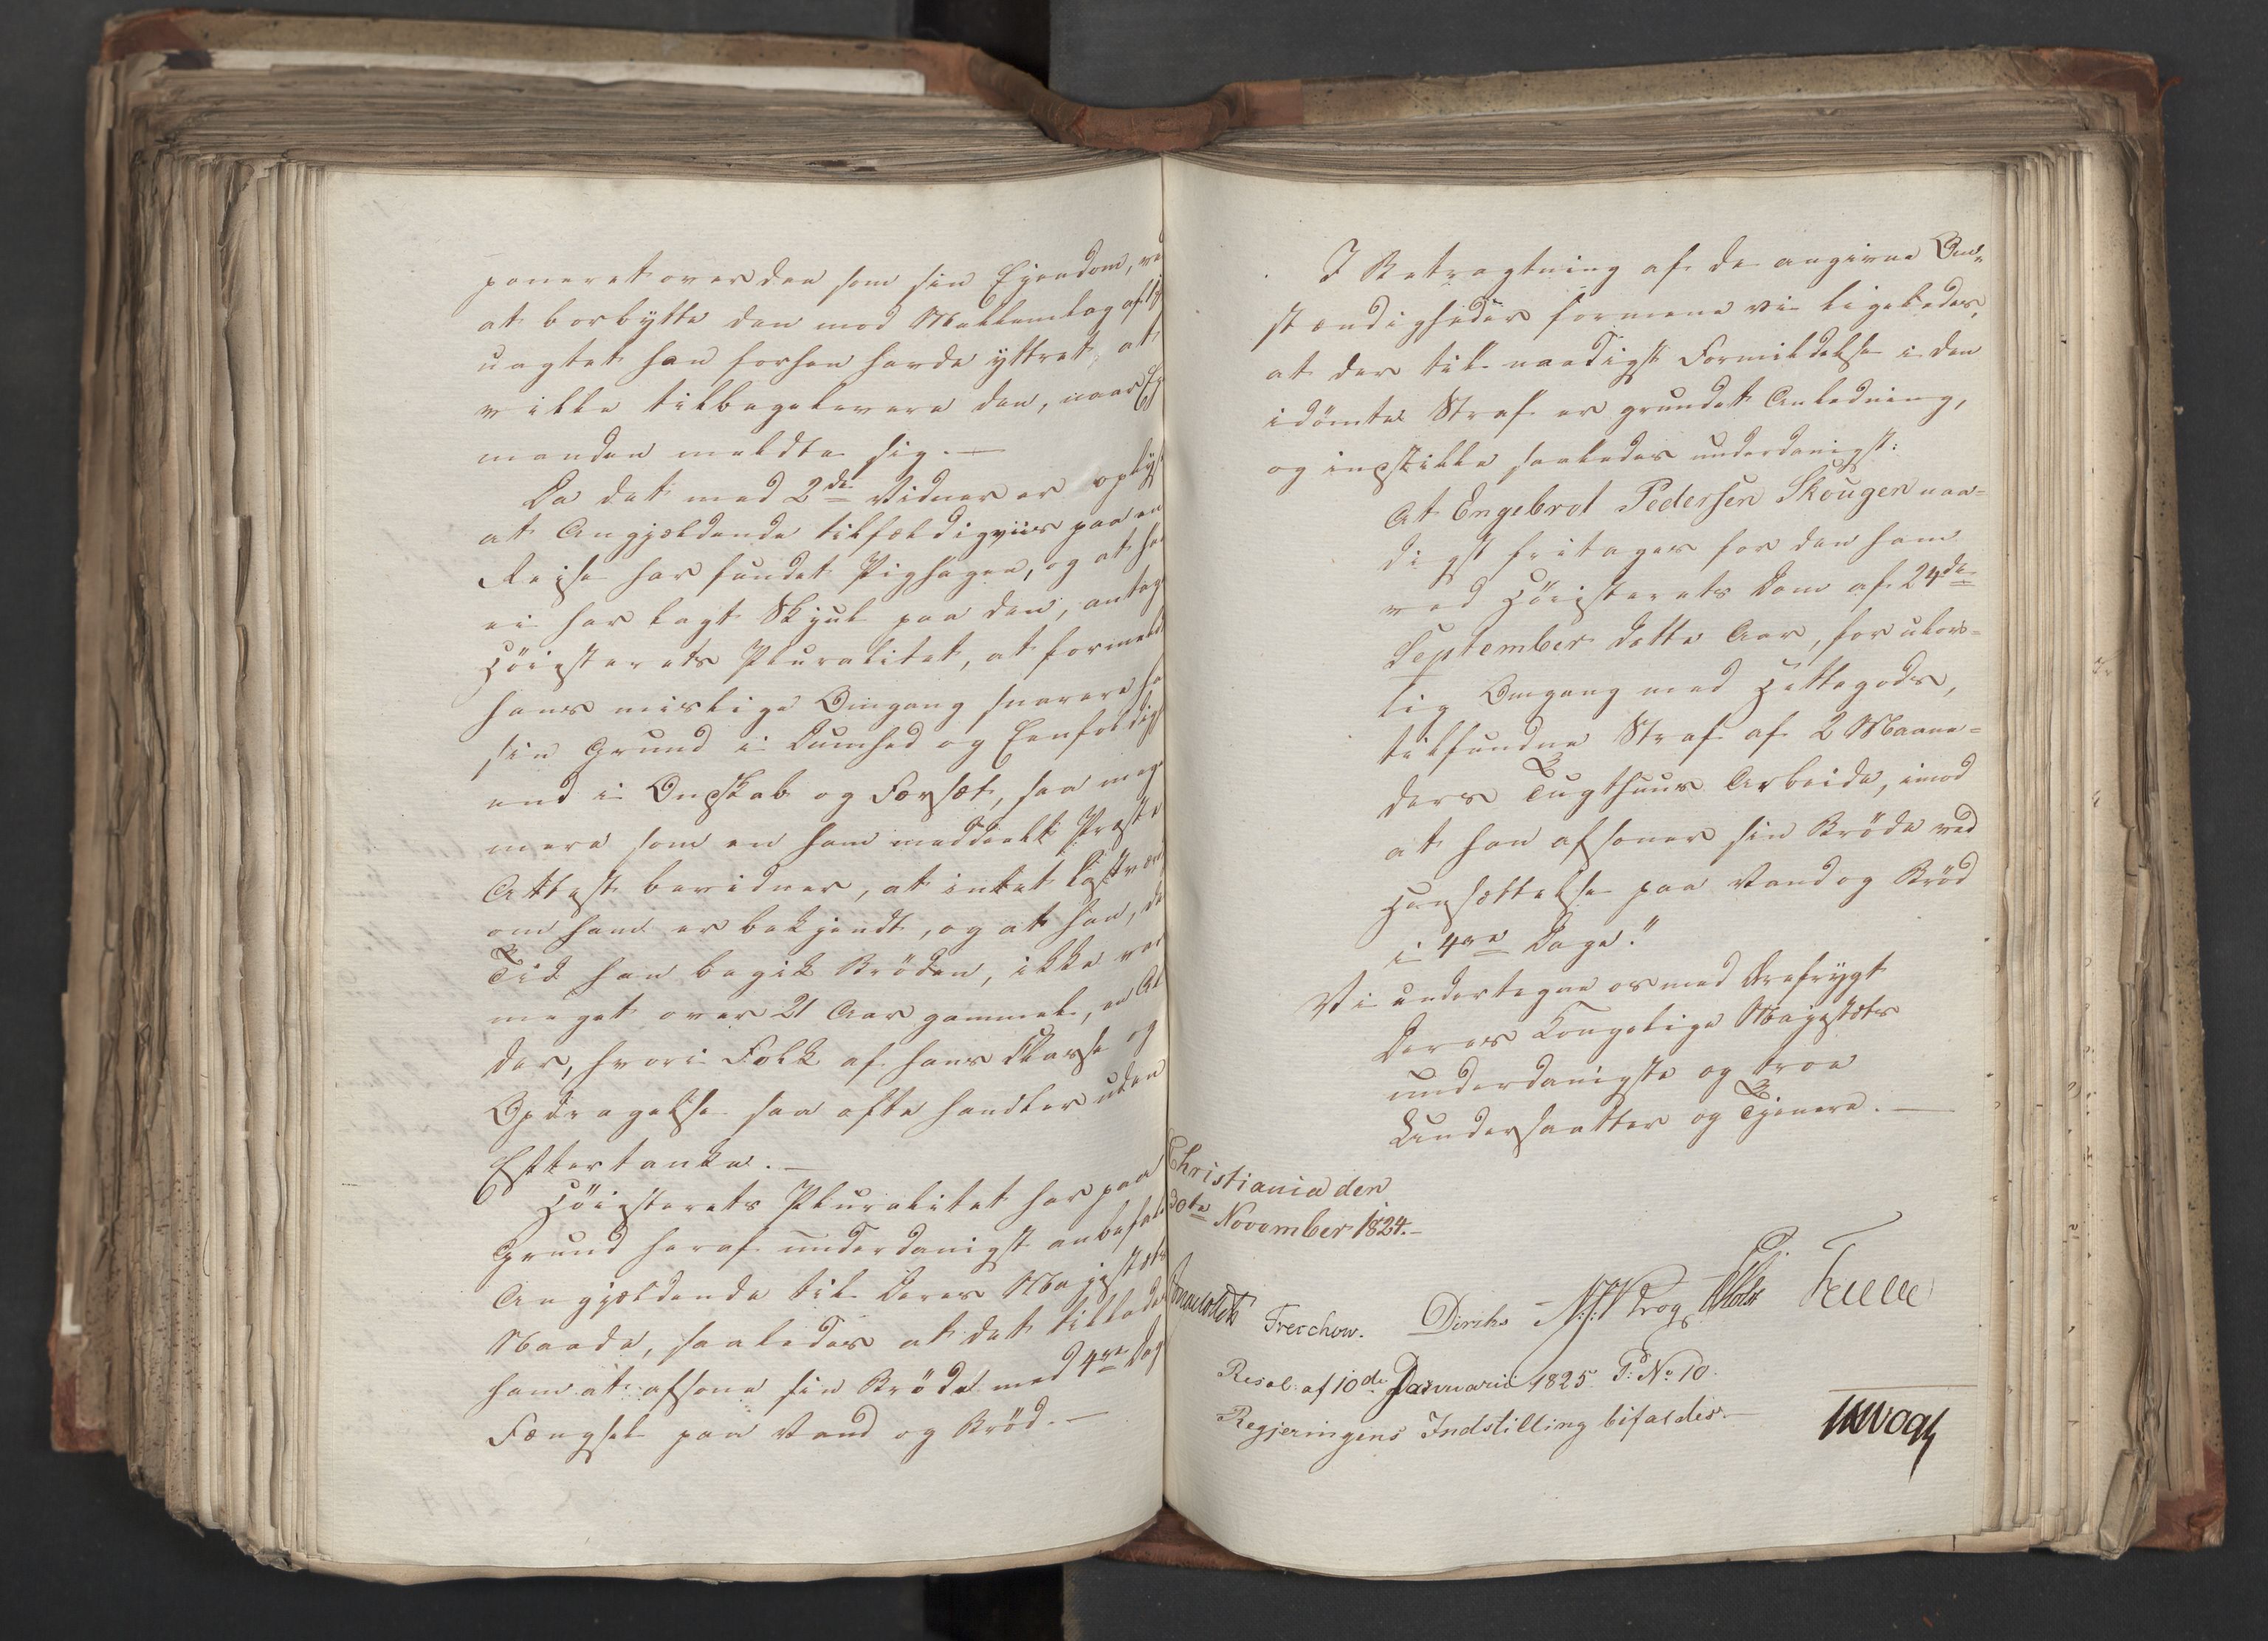 poneret over den som sin Eiendom, ved
at bortbytte den mod Mellemlag af
uagtet han forhen havde yttret, at
ville tilbagelevere den, naar
manden meldte sig. —
Da det med 2de Vidner er oplyst
at Angjældende tilfældigviis paa en
Reise har fundet Pighagen, og at han
ei har lagt Skjul paa den, antog
Høiesterets Pluralitet, at formeldte
hans mislige Omgang snarere ha
sin Grund i Dumhed og Eenfoldig
end i Ondskab og Forsæt, saa meget
mere som en ham meddeelt Præste
Attest bevidner, at intet Lastvær
om ham er bekjendt, og at han, da
Tid han begik Brøden, ikke var
meget over 21 Aar gammel, en Al
der, hvori Folk af hans Classe og
Opdragelse saa ofte handler uden
Eftertanke. —
Høiesterets Pluralitet har paa
Grund heraf underdanigst anbefalet
Angjældende til Deres Majestæts
Naade, saaledes at det tillades
ham at afsone sin Brøde med 4re Dag
Fængsel paa Vand og Brød. —
I Betragtning af de angivne Om-
stændigheder formene vi ligeledes,
at der til naadigst Formildelse i den
idømte Straf er grundet Anledning,
og indstille saaledes underdanigst:
At Engebret Pedersen Skougen naa-
digst fritages for den ham
ved Høiesterets Dom af 24de
September dette Aar, for ulov-
lig Omgang med Hittegods,
tilfundne Straf af 2 Maane-
ders Tugthuus Arbeide, imod
at han afsoner sin Brøde ved
Hensættelse paa Vand og Brød
i 4re Dage."
Vi undertegne os med Ærefrygt
Deres Kongelige Majestæts
underdanigste og troe
Undersaatter og Tjenere. —
Christiania den
30te November 1824. —
Treschow. Diriks Krog Holst
Resol. af 10de Januarii 1825. P: No 10.
Regjeringens Indstilling bifaldes. —
Vogt